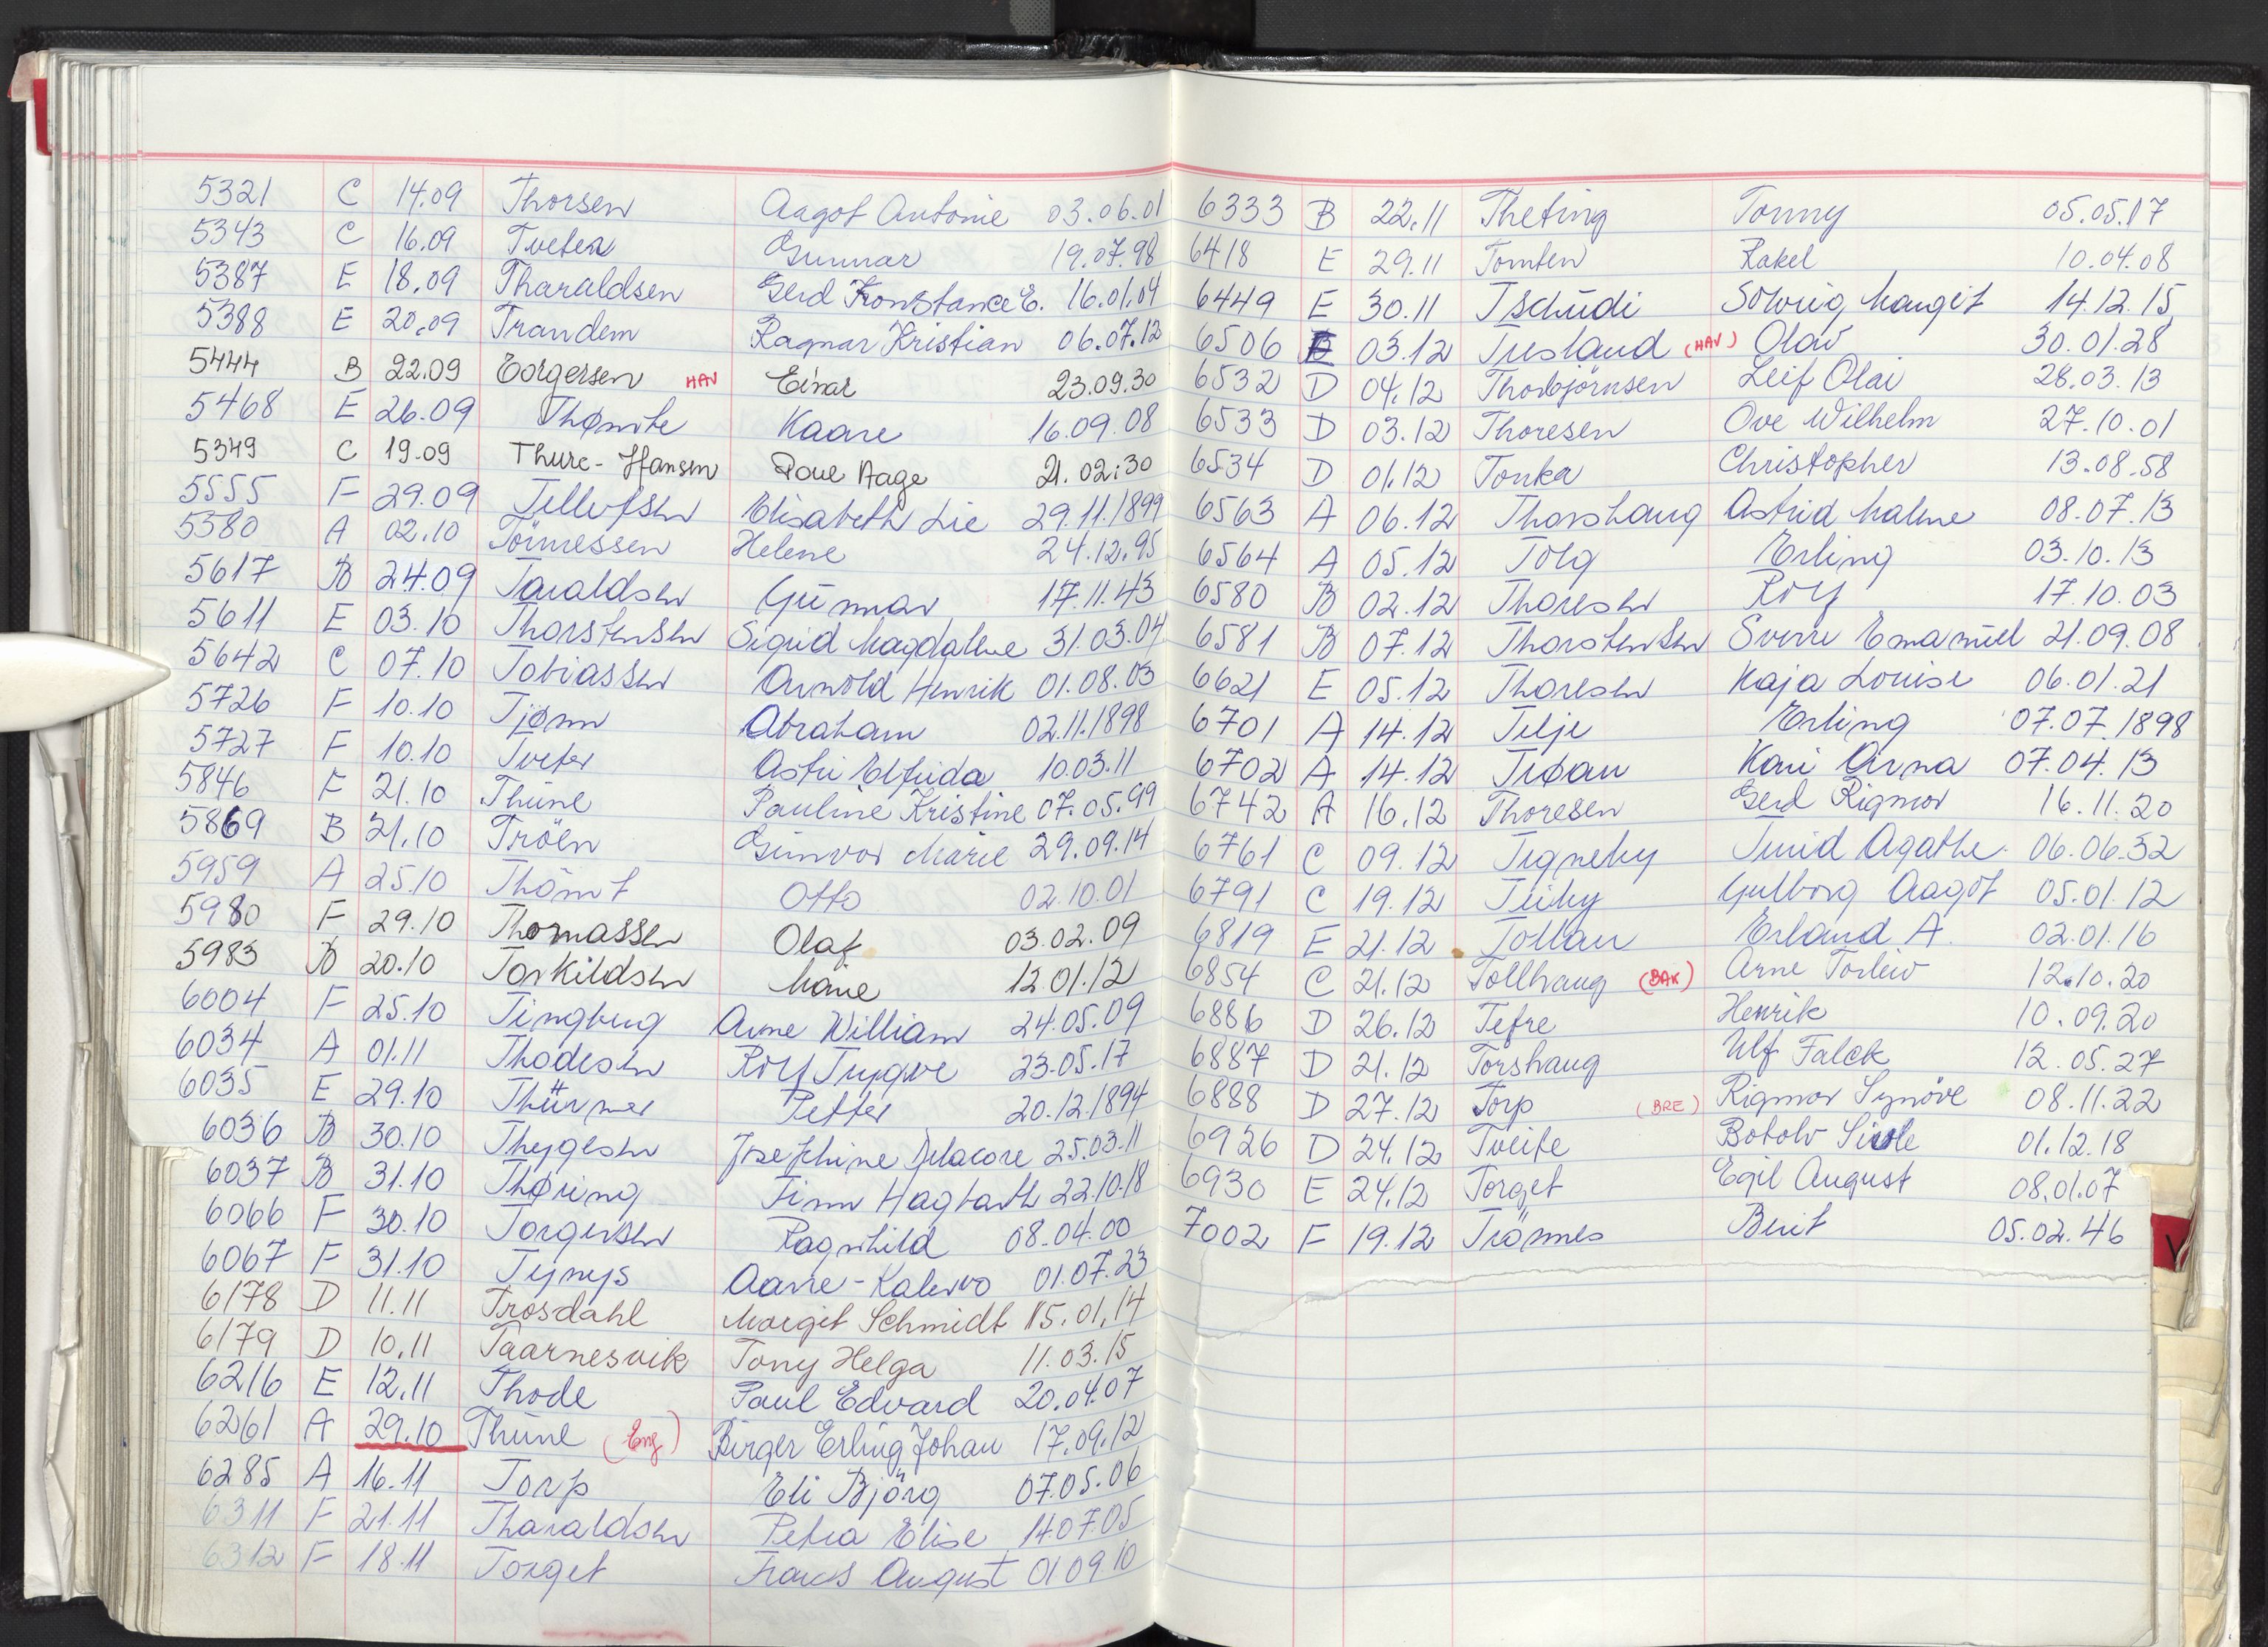 5321 C 14.09 Thorsen Aagot Antonie 03.06.01
5343 C 16.09 Tveter Gunnar 19.07.98
5387 E 18.09 Tharaldsen Gerd Konstance E. 16.01.04
5388 E 20.09 Trandem Ragnar Kristian 06.07.12
5444 B 22.09 Torgersen HAV Einar 23.09.30
5468 E 26.09 Kaare 16.09.08
5349 C 19.09 Thure-Hansen Poul Aage 21.02.30
5555 F 29.09 Tellefsen Elisabeth Lie 29.11.1899
5580 A 02.10 Tönnessen Helene 24.12.95
5617 B 24.09 Taraldsen Gunnar 17.11.43
5611 E 03.10 Thorstensen Sigrid Magdalene 31.03.04
5642 C 07.10 Tobiassen Arnold Henrik 01.08.03
5726 F 10.10 Tjønn Abraham 02.11.1898
5727 F 10.10 Tveter Astri Elfrida 10.03.11
5846 F 21.10 Thune Pauline Kristine 07.05.99
5869 B 21.10 Tröen Gunvor Marie 29.09.14
5959 A 25.10 Thömt Otto 02.10.01
5980 F 29.10 Thomassen Olaf 03.02.09
5983 B 20.10 Torkildsen Marie 12.01.12
6004 F 25.10 Tingberg Arne William 24.05.09
6034 A 01.11 Thodesen Rolf Trygve 23.05.17
6035 E 29.10 Thürmer Petter 20.12.1894
6036 B 30.10 Thygesen Josephine Delacore 25.03.11
6037 B 31.10 Thøring Finn Hagbarth 22.10.18
6066 F 30.10 Torgersen Ragnhild 08.04.00
6067 F 31.10 Tynys Aarre-Kalervo 01.07.23
6178 D 11.11 Trosdahl Margit Schmidt 15.01.14
6179 D 10.11 Taarnesvik Tony Helga 11.03.15
6216 E 12.11 Thode Paul Edvard 20.04.07
6261 A 29.10 Thune (Eng) Birger Erling Johan 17.09.12
6285 A 16.11 Torp Eli Björg 07.05.06
6311 F 21.11 Tharaldsen Petra Elise 14.07.05
6312 F 18.11 Torget Frants August 01.09.10
6333 B 22.11 Theting Tonny 05.05.17
6418 E 29.11 Tomten Rakel 10.04.08
6449 E 30.11 Tschudi Solveig Margit 14.12.15
6506 E 03.12 Tresland (HAV) Olav 30.01.28
6532 D 04.12 Thorbjörnsen Leif Olai 28.03.13
6533 D 03.12 Thoresen Ove Wilhelm 27.10.01
6534 D 01.12 Tonka Christopher 13.08.58
6563 A 06.12 Thorshaug Astrid Malene 08.07.13
6564 A 05.12 Tolg Erling 03.10.13
6580 B 02.12 Thoresen Rolf 17.10.03
6581 B 07.12 Thorstensen Sverre Emanuel 21.09.08
6621 E 05.12 Thoresen Kaja Louise 06.01.21
6701 A 14.12 Telje Erling 07.07.1898
6702 A 14.12 Trøan Kari Arna 07.04.13
6742 A 16.12 Thoresen Gerd Rigmor 16.11.20
6761 C 09.12 Turid Agathe 06.06.32
6791 C 19.12 Gulborg Aagot 05.01.12
6819 E 21.12 Tollan Erland A. 02.01.16
6854 C 21.12 Tollhaug (BAK) Arne Torleiv 12.10.20
6886 D 26.12 Tefre Henrik 10.09.20
6887 D 21.12 Torshaug Ulf Falck 12.05.27
6888 D 27.12 Torp (BRE) Rigmor Synöve 08.11.22
6926 D 24.12 Tveite Botolv Sivle 01.12.18
6930 E 24.12 Torget Egil August 08.01.07
7002 F 19.12 Trönnes Berit 05.02.46